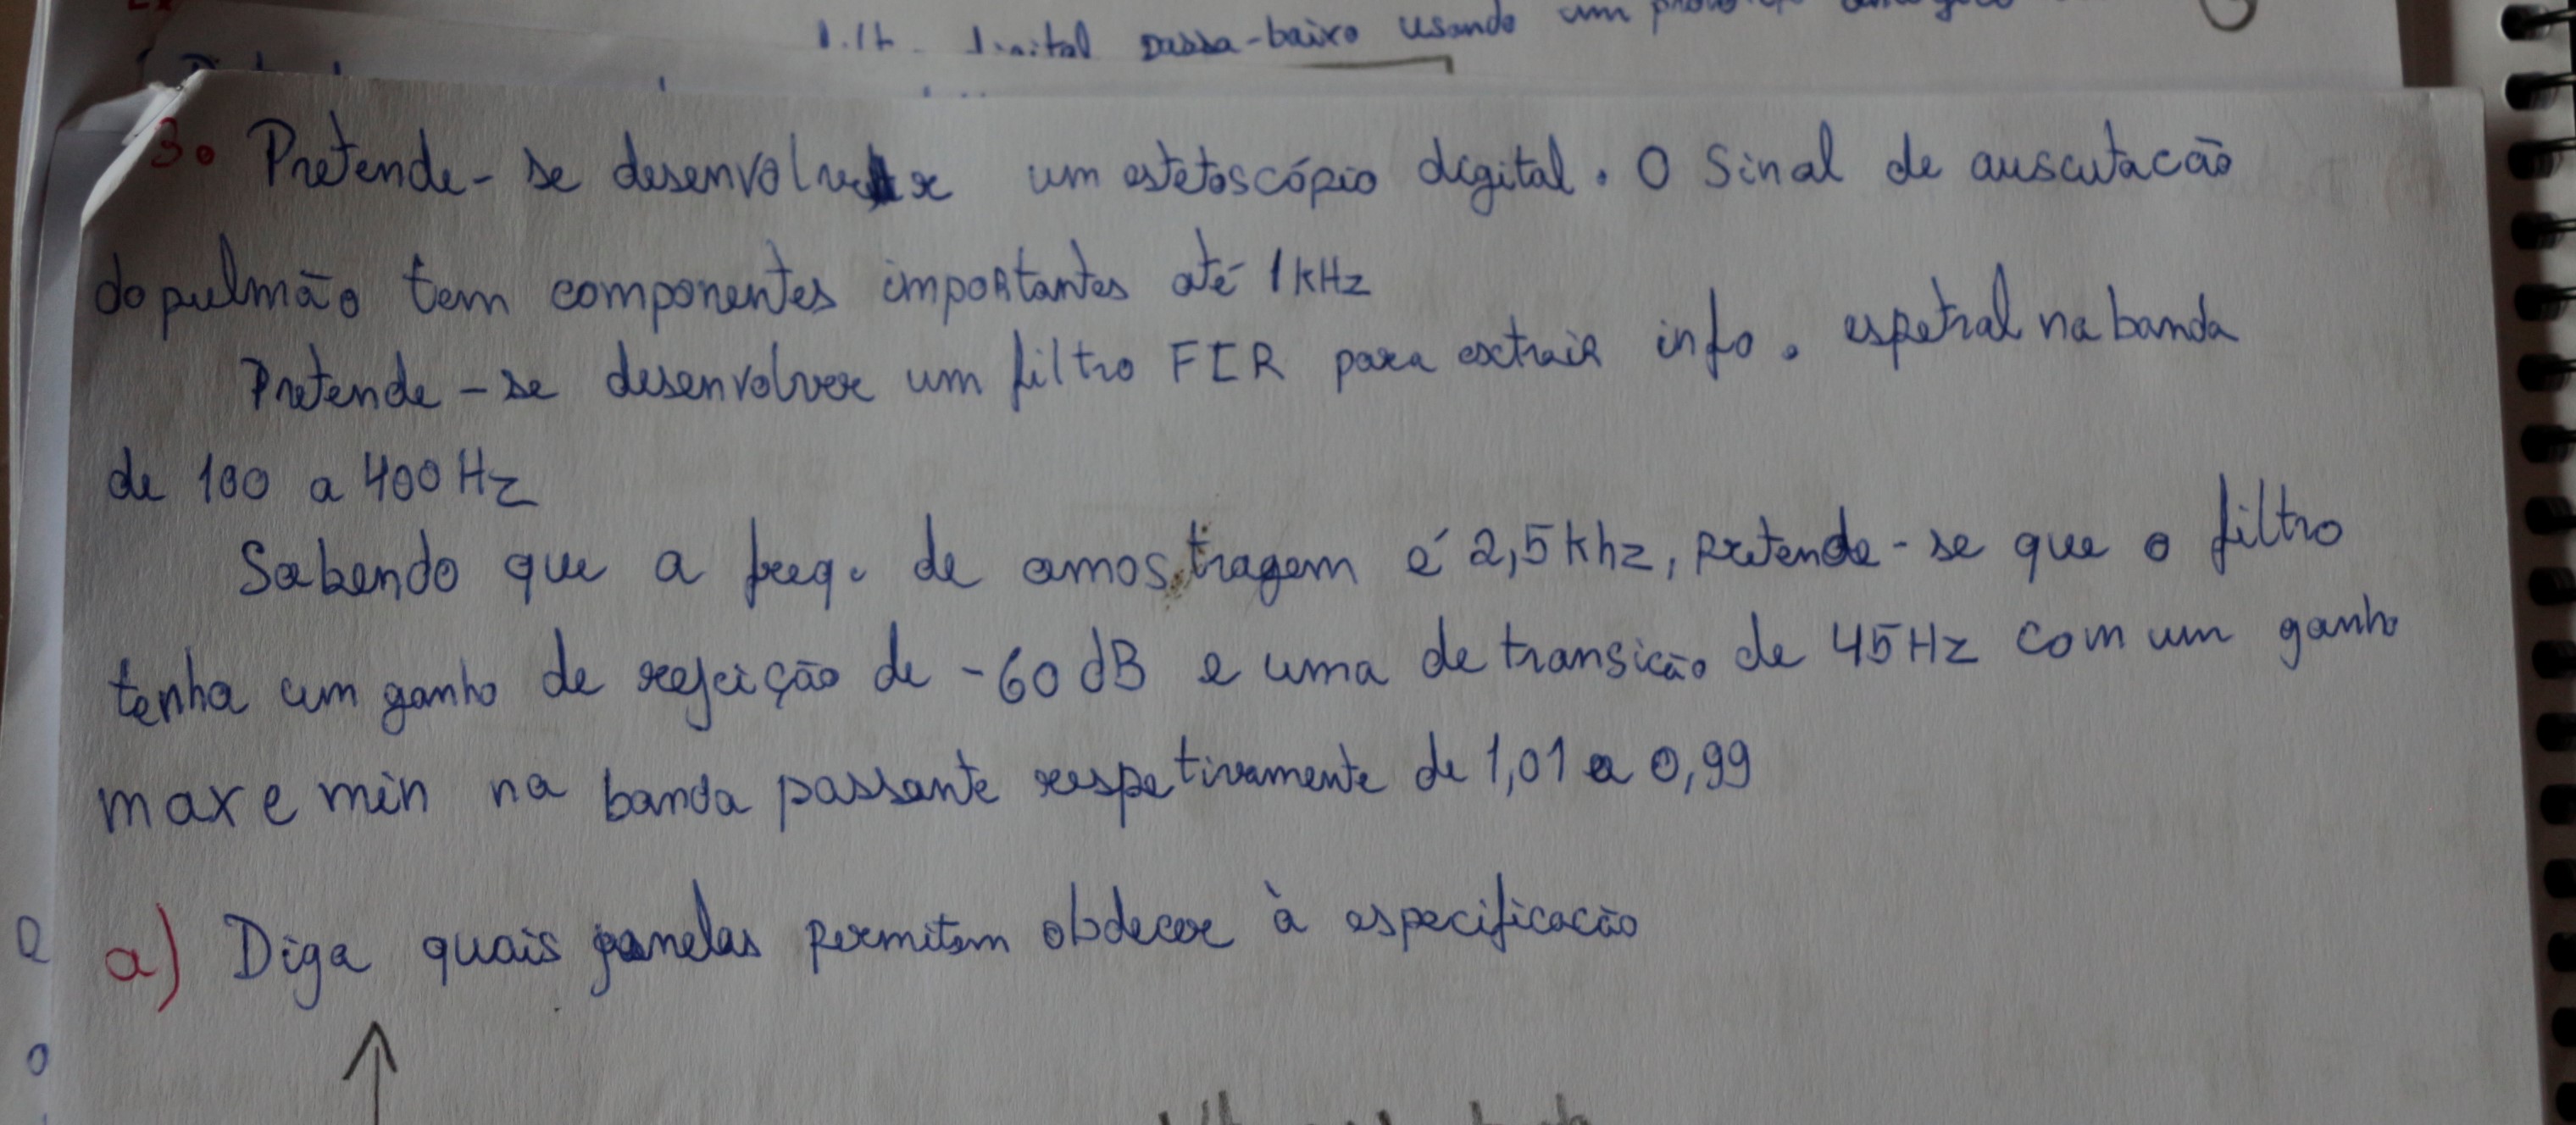 digital passa-baixo usando um
3. Pretende-se desenvolver um estetoscópio digital. O Sinal de auscutacão
do pulmão tem componentes importantes até 1kHz
Pretende-se desenvolver um filtro FIR para extrair info. espetral na banda
de 100 a 400 Hz
Sabendo que a freq. de amostragem é 2,5khz, pretende-se que o filtro
tenha um ganho de rejeição de -60 dB e uma de transicão de 45Hz com um ganho
max e min na banda passante respetivamente de 1,01 e 0,99
a) Diga quais janelas permitem obdecer à especificacão